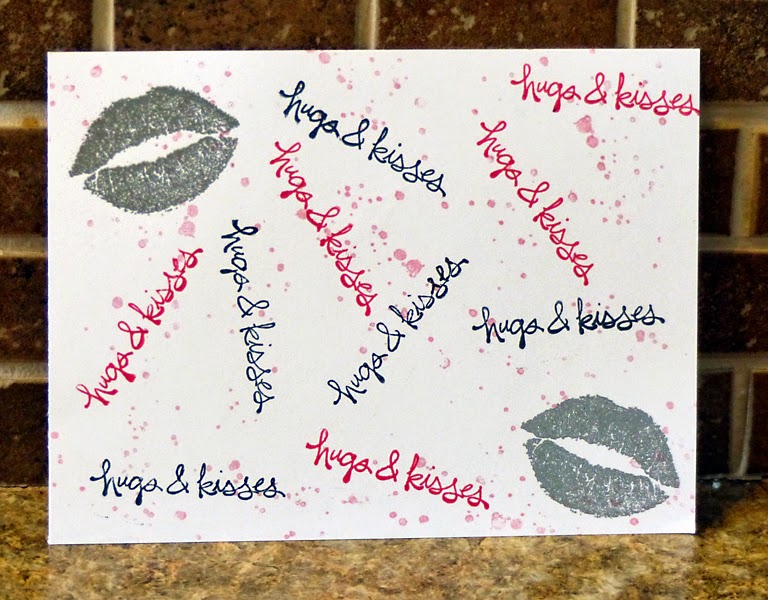 hugs & kisses
hugs & kisses
hugs & kisses
hugs & kisses
hugs & kisses
hugs & kisses
hugs & kisses
hugs & kisses
hugs & kisses
hugs & kisses